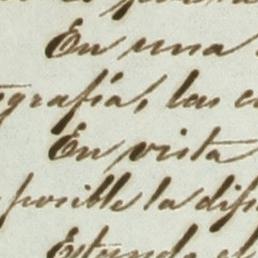 En una
grafía, las
En vista
posible la
Estando el